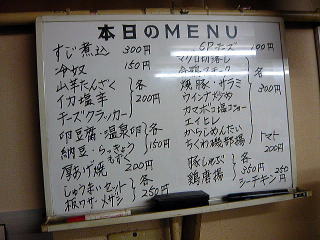 本日のMENU
すじ煮込 300円
冷奴 150円
山芋たんざく
イカ塩辛
チーズクラッカー
各200円
卵豆腐・温泉卵
納豆・らっきょう
もずく
各150円
厚あげ焼 200円
しゅうまいセット
板ワサ・メザシ
各250円
6Pチーズ 100円
マグロ切落し
焼豚・サラミ
ウインナ炒め
カマボコ塩コショー
エイヒレ
各300円
からしめんたい
ちくわ磯部揚
トマト
200円
豚しゃぶ
鶏唐揚
各350円
シーチキン 250円